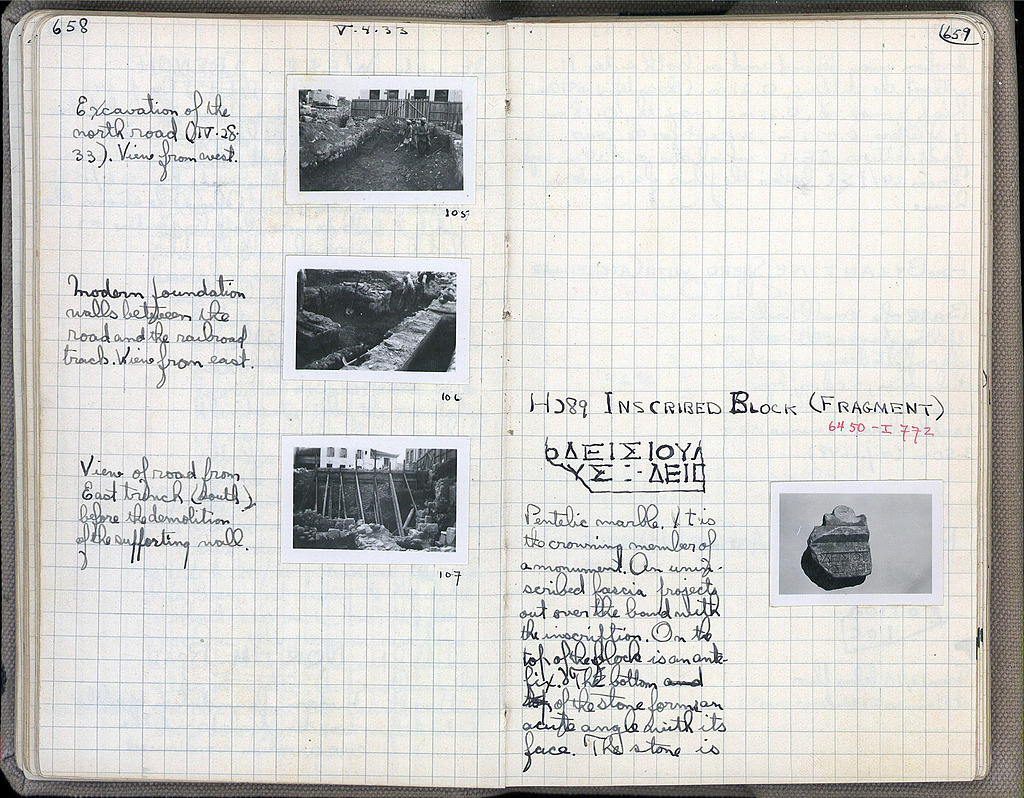 658
V·4·33
Excavation of the
north road (IV·28·
33). View from west.
105
Modern foundation
walls between the
road and the railroad
track. View from east.
106
View of road from
East trench (South),
before the demolition
of the supporting wall.
107
659
H)89 INSCRIBED BLOCK (FRAGMENT)
6450-I 772
ΟΔΕΙΣΙΟΥΛ
ΥΣ : ΔΕΙΟ
Pentelic marble. It is
the crowning member of
a monument. An unin-
scribed fascia projects
out over the band with
the inscription. On the
top of the block is an ante-
fix. The bottom and
top of the stone forms an
acute angle with its
face. The stone is